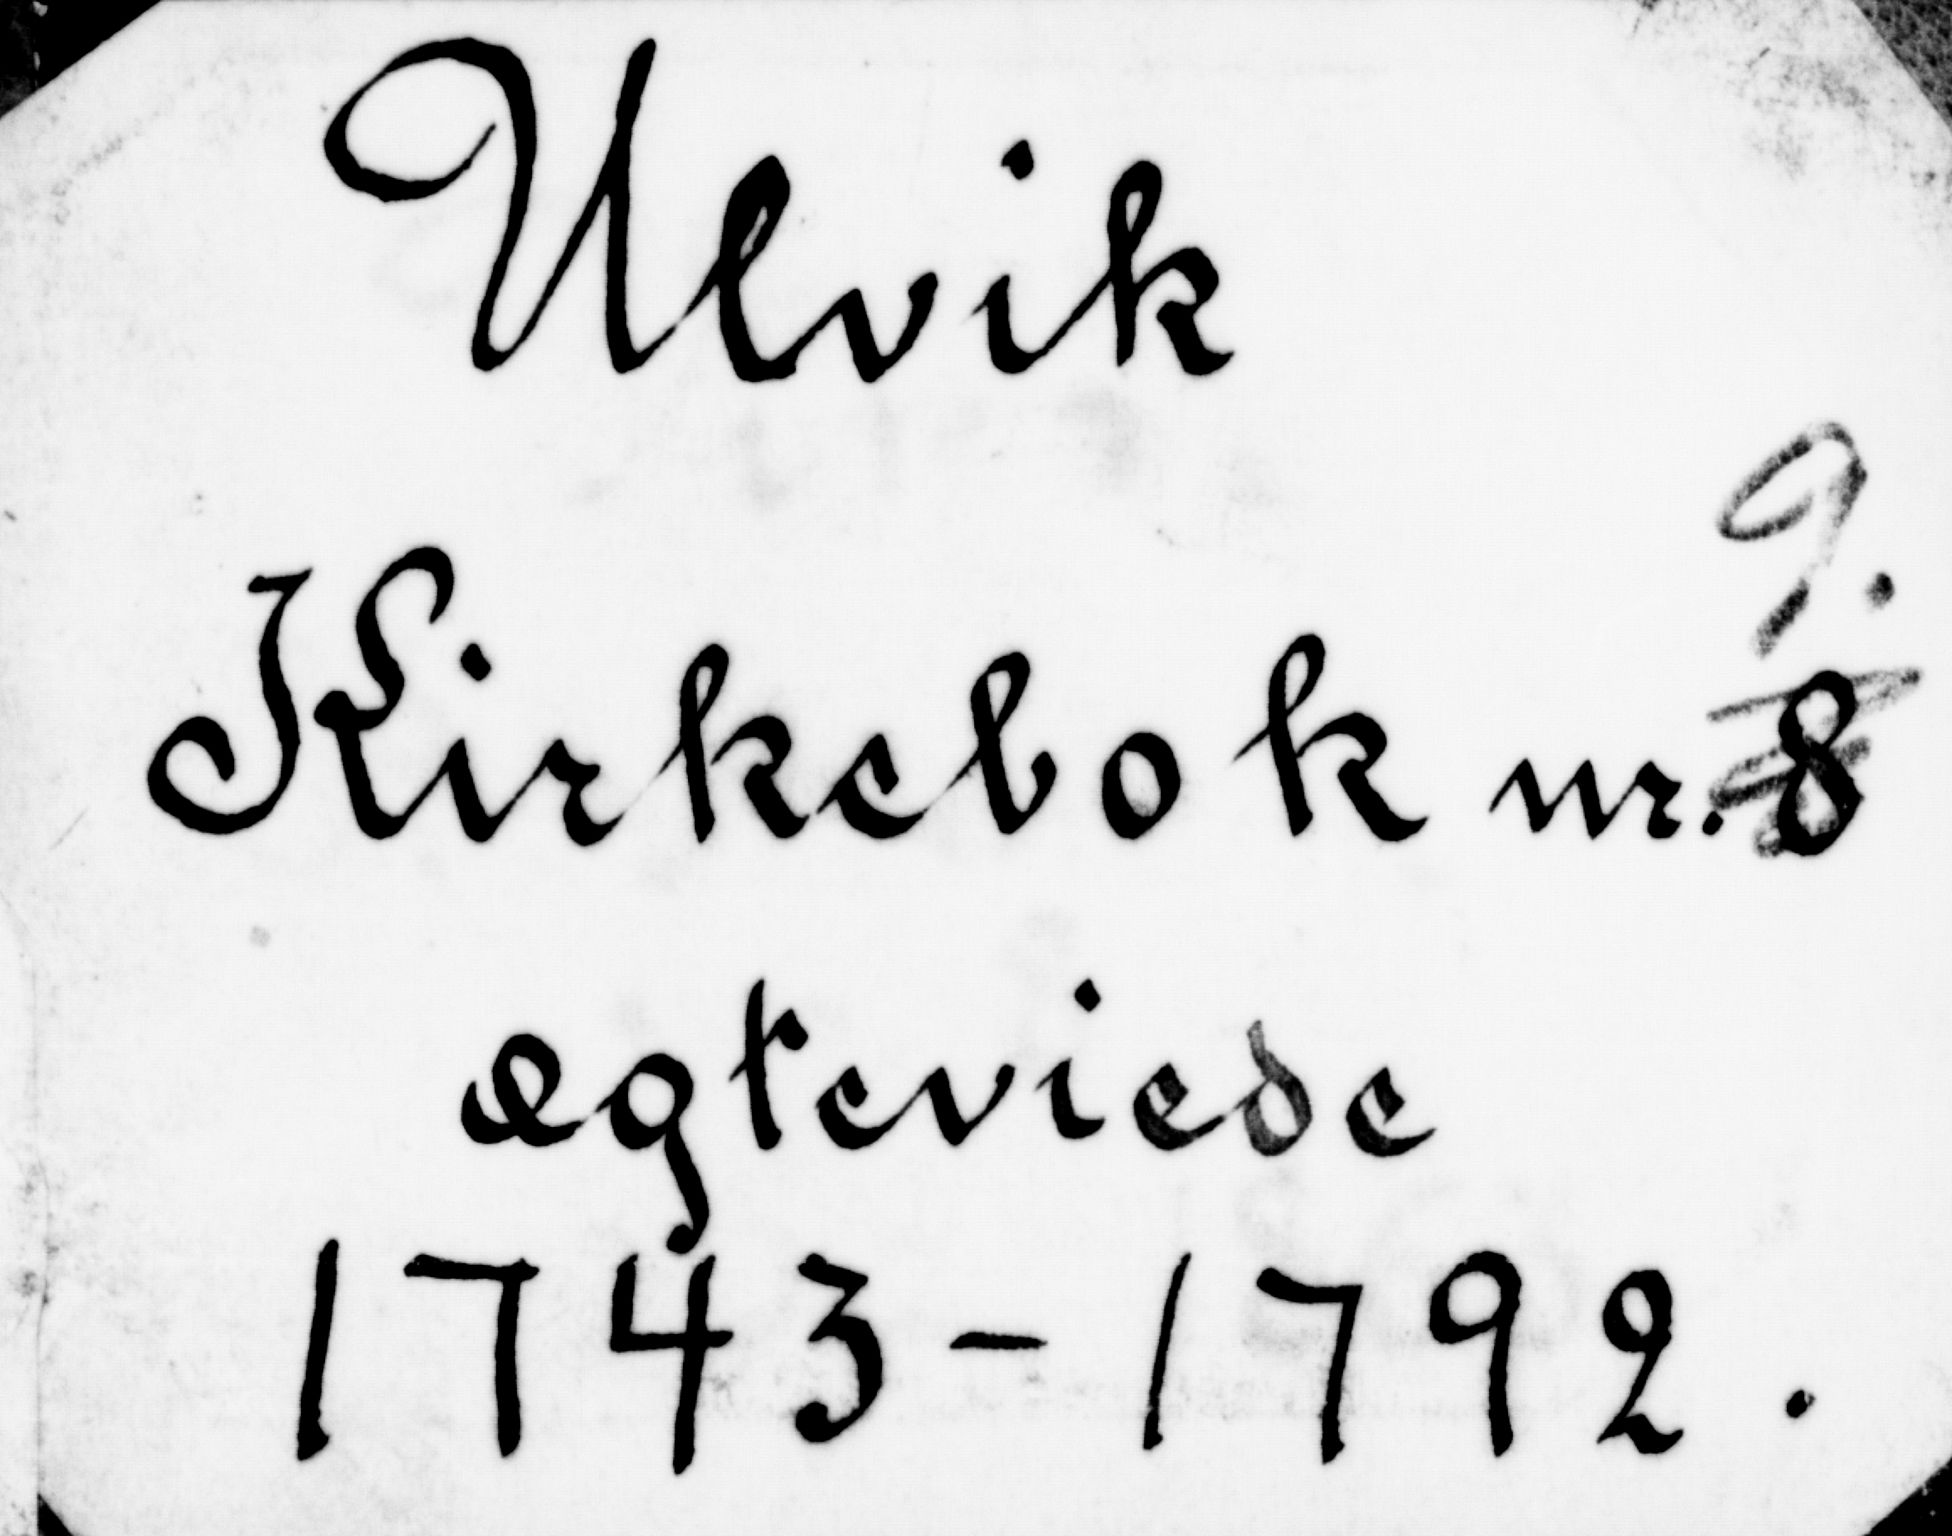 Ulvik
9.
Kirkebok nr. 8
ægteviede
1743-1792.